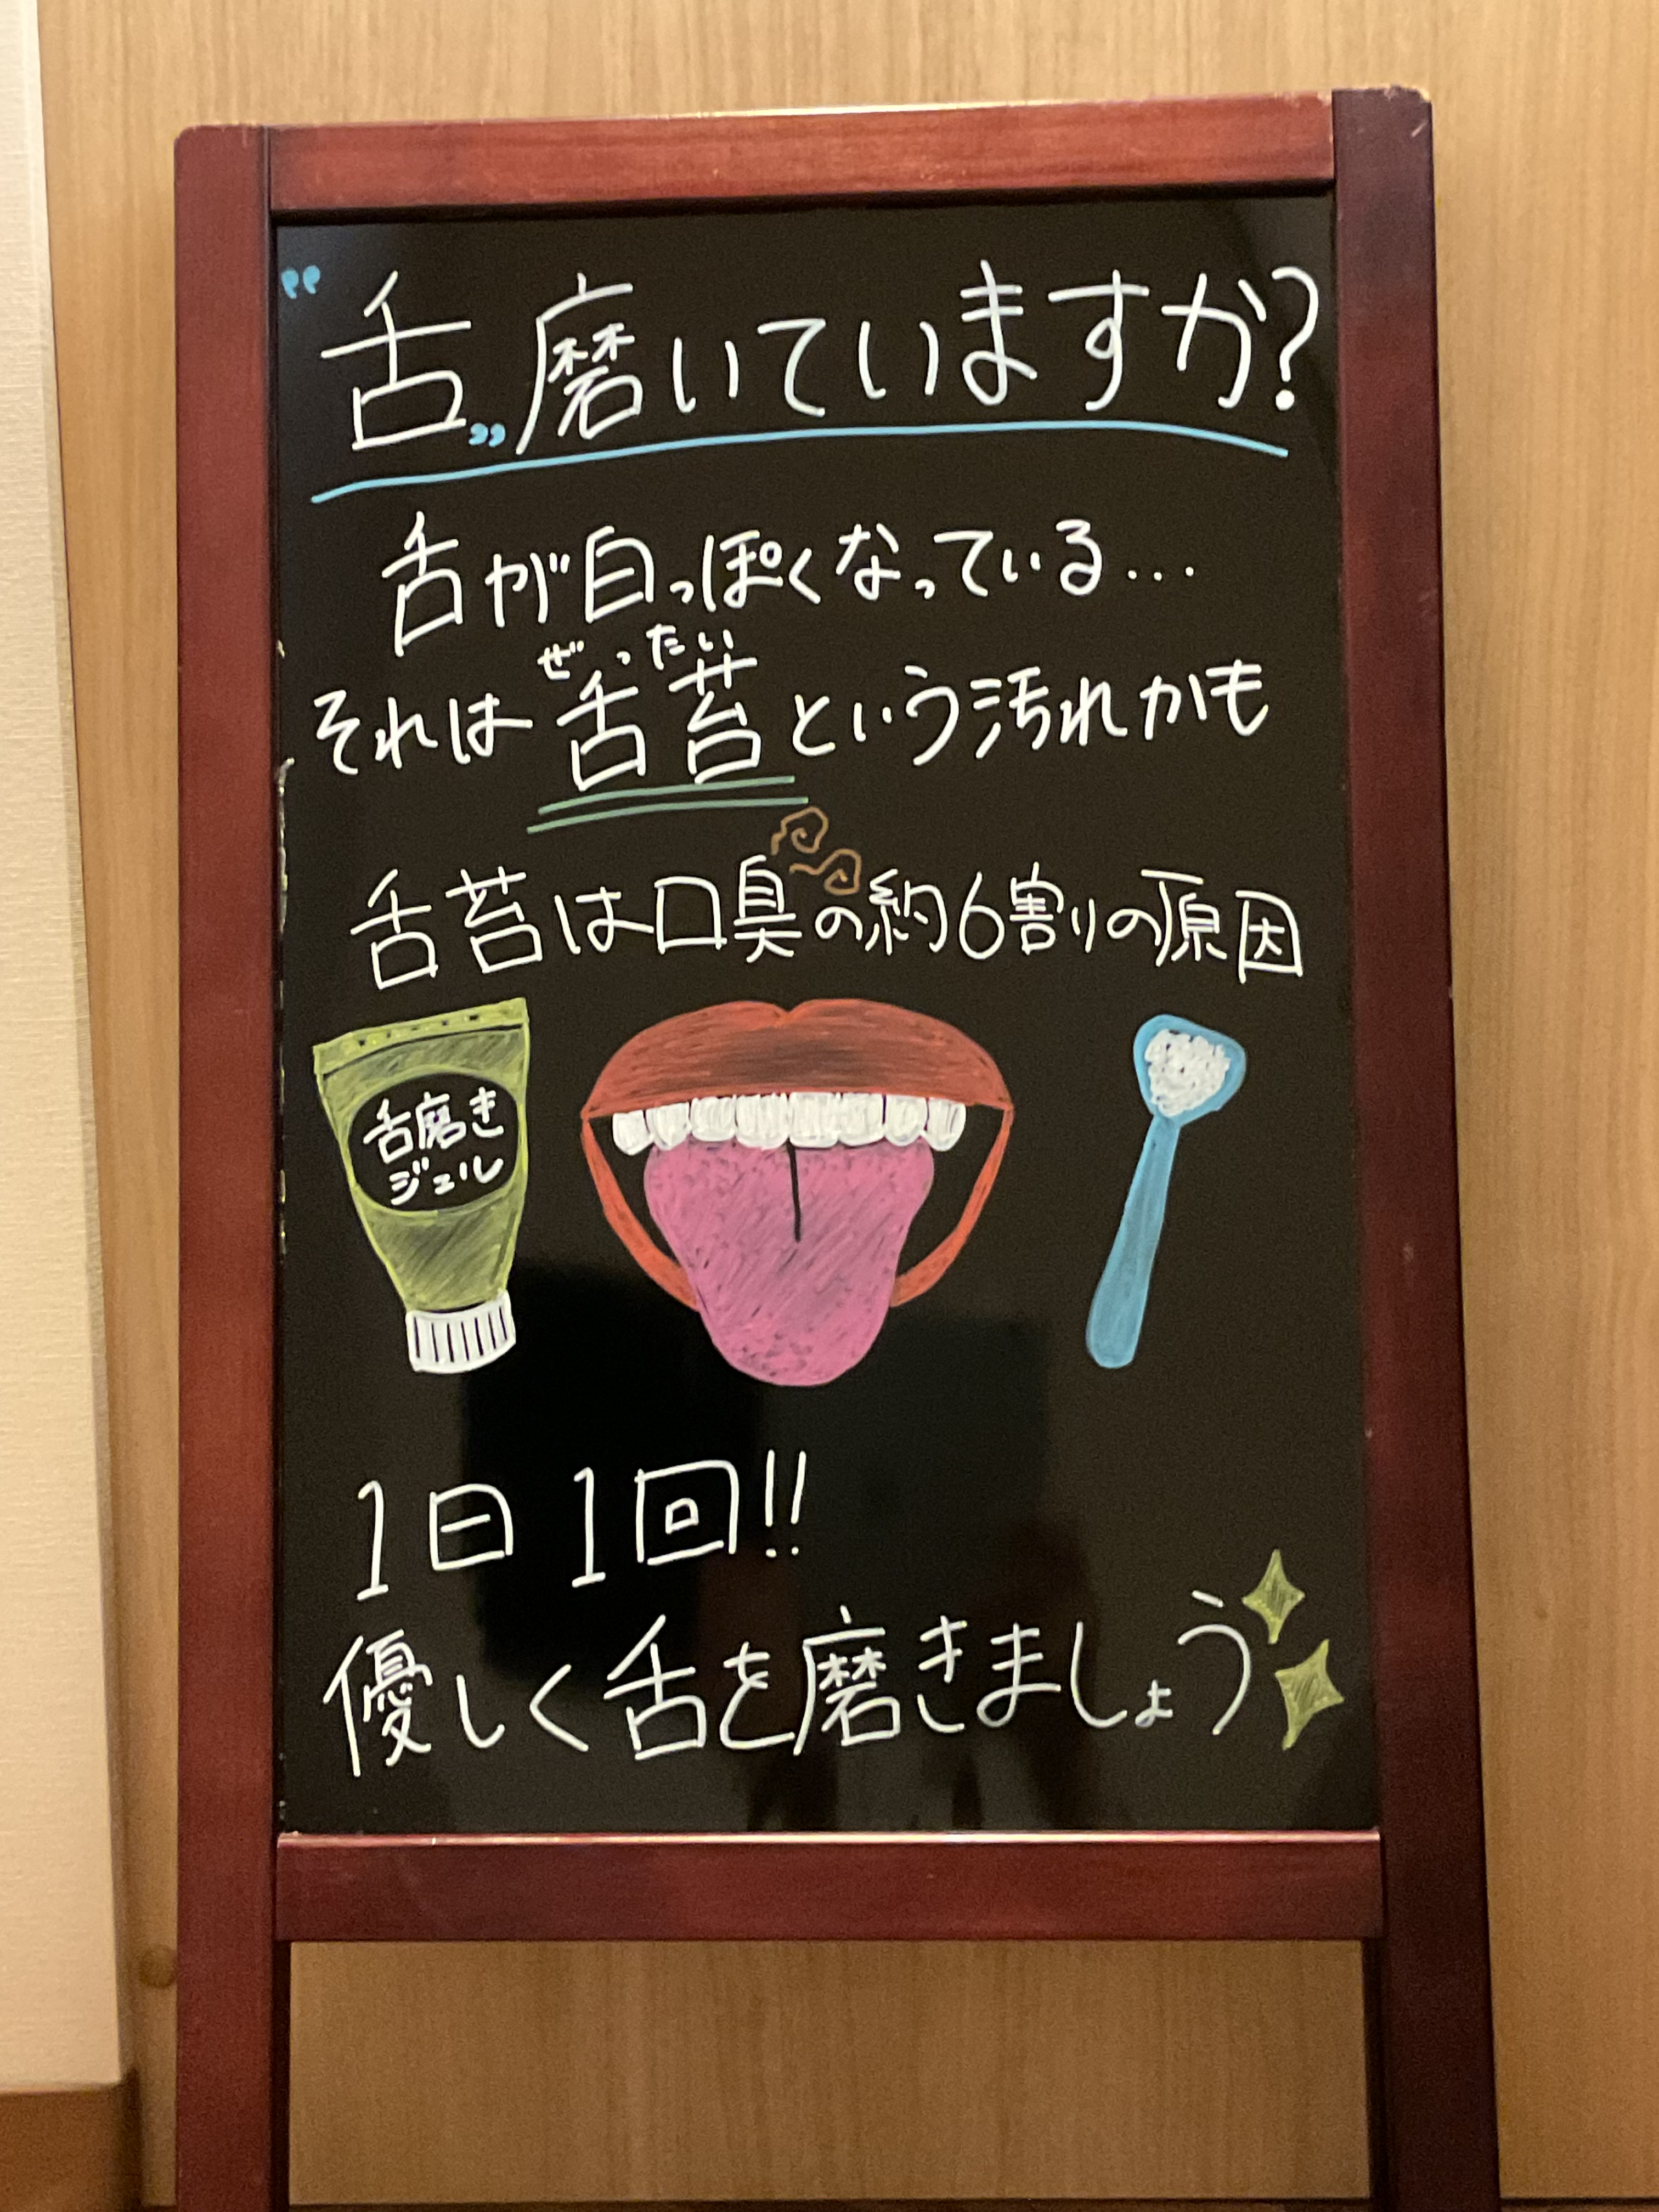 “舌„磨いていますか?
舌が白っぽくなっている...
ぜったい
それは舌苔という汚れかも
舌苔は口臭の約6割の原因
舌磨き
ジェル
1日1回!!
優しく舌を磨きましょう